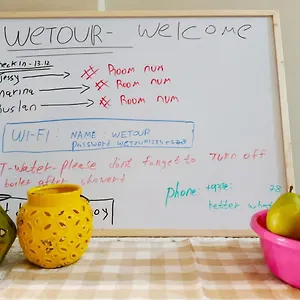 WETOUR - Welcome
heck in - 13.12
Jessy → # Room num
marina → # Room num
Ruslan → # Room num
WI-FI: NAME: WETOUR
Password
T-water-Please dont forget to Turn off
boiler after shower!
phone: 28
better what
oy